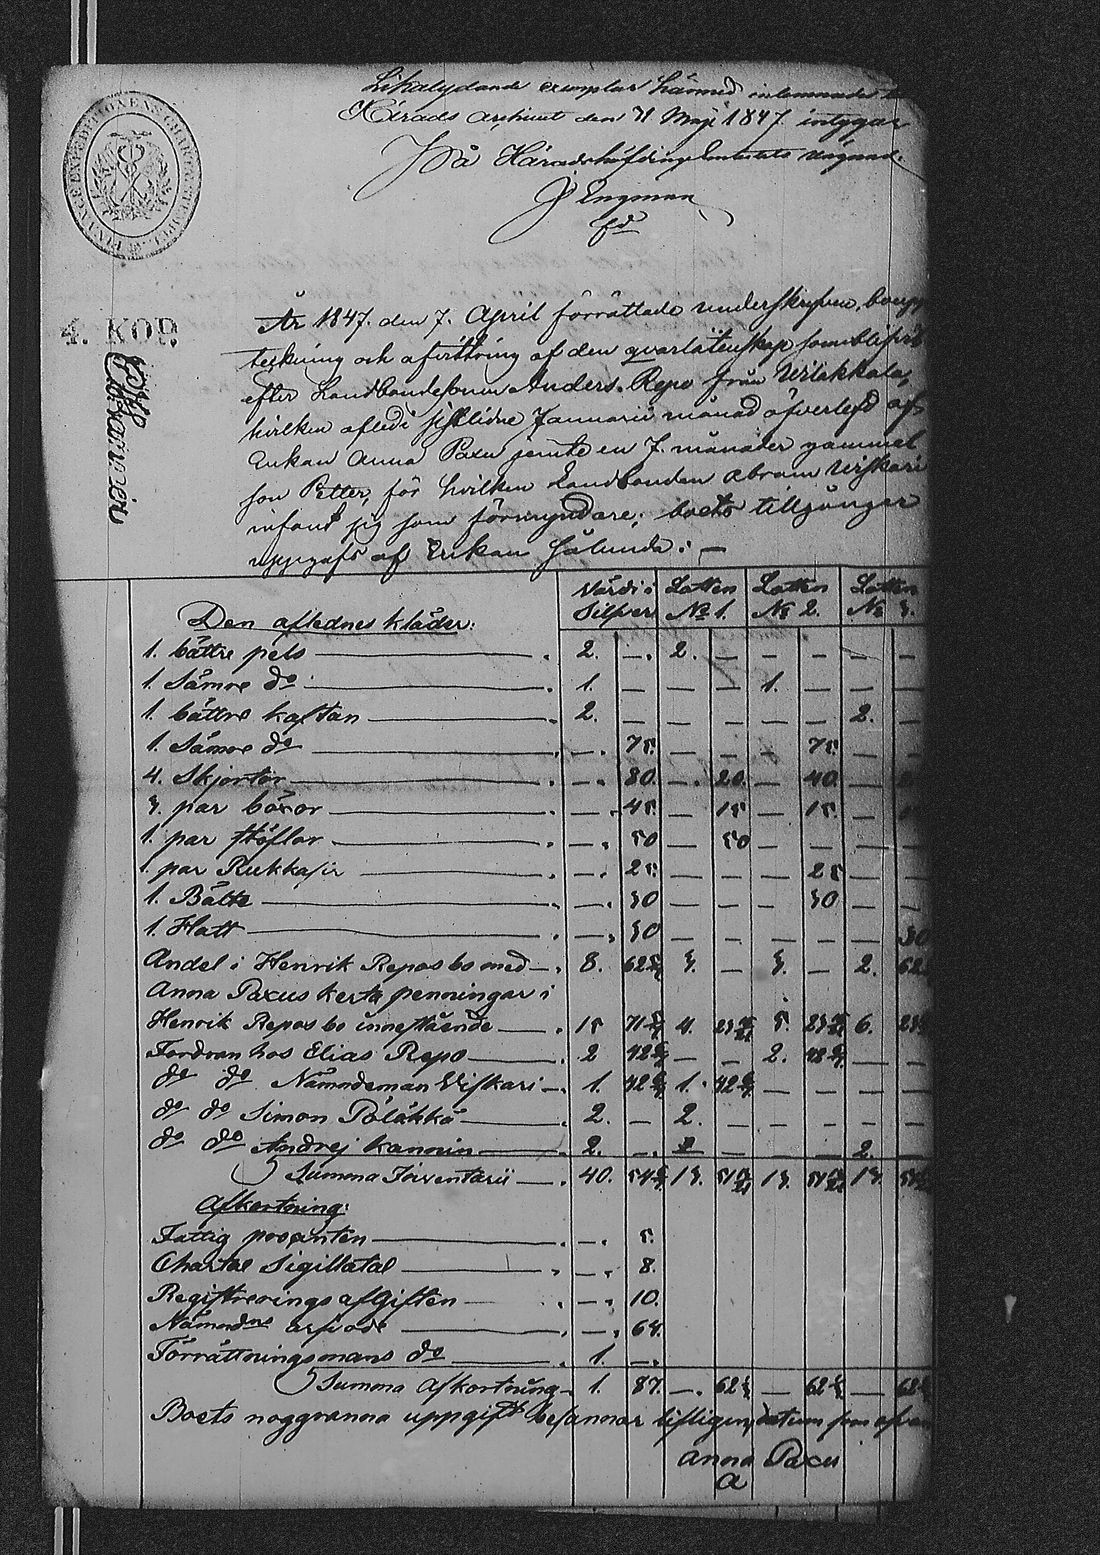 Likalydande exemplar härmed inlemnadt
Härads Archivet den 31 Maji 1847 intygar
På Häradshöfdinge Embetets vägnar
J Engman
4. KOP.
År 1847. den 7. April förrättade underskrifven, boupp
teckning och afvittring af den qvarlåtenskap som blifvit
efter Landbondesonen Anders Repo från Uilakkala,
hvilken afled i sistlidne Januarii månad öfverlefd af
Enkan Anna Paxu jemte en 7. månader gammal
son Petter, för hvilken Landbonden Abram Wiskari
infant sig som förmyndare; boets tillgångar
uppgafs af Enkan sålunda: —
Värdi i Lotten Lotten Lotten
Silfver № 1. № 2. № 3.
Den aflednes kläder:
1. bättre pels — . 2. — . 2. — — — — —
1. Sämre do — . 1. — — — 1. — — —
1. bättre kaftan — . 2. — — — — — 2. —
1. Sämre do — . — . 75. — — — 75. — —
4. Skjortor — . — . 80. — . 20. — 40. —
3. par böxor — . — . 45. — 15 — 15. —
1. par stöflor — . — . 50 — 50 — — — —
1. par Rukkasir — . — . 25. — — — 25 — —
1. Bälte — . — . 30 — — — 30 — —
1. Hatt — . — . 30 — — — — — 30
Andel i Henrik Repos bo med — . 8. 62 3. — 3. — 2. 62
Anna Paxus kerta penningar i
Henrik Repos bo innestående — . 15 71 4. 23 5. 23 6. 23
Fordran hos Elias Repo — . 2 42 — — 2. 42 — —
do do Nämndeman Wiskari — . 1. 42 1. 42 — — — —
do do Simon Pöläkkä — . 2. — 2. — — — — —
do do Andrej Kannin — . 2. — . — — — 2. —
Summa Inventarii — . 40. 54 13. 51 13. 51 13. 51
Afkortning:
Fattig procenten — . — . 5.
Charta Sigillatal — . — . 8.
Registrerings afgiften — . — . 10.
Nämndens arfvode — . — . 64.
Förrättningsmans do — . 1. — .
Summa Afkortning — 1. 87. — . 62 — 62 — 62
Boets noggranna uppgift besannar
Anna Paxu